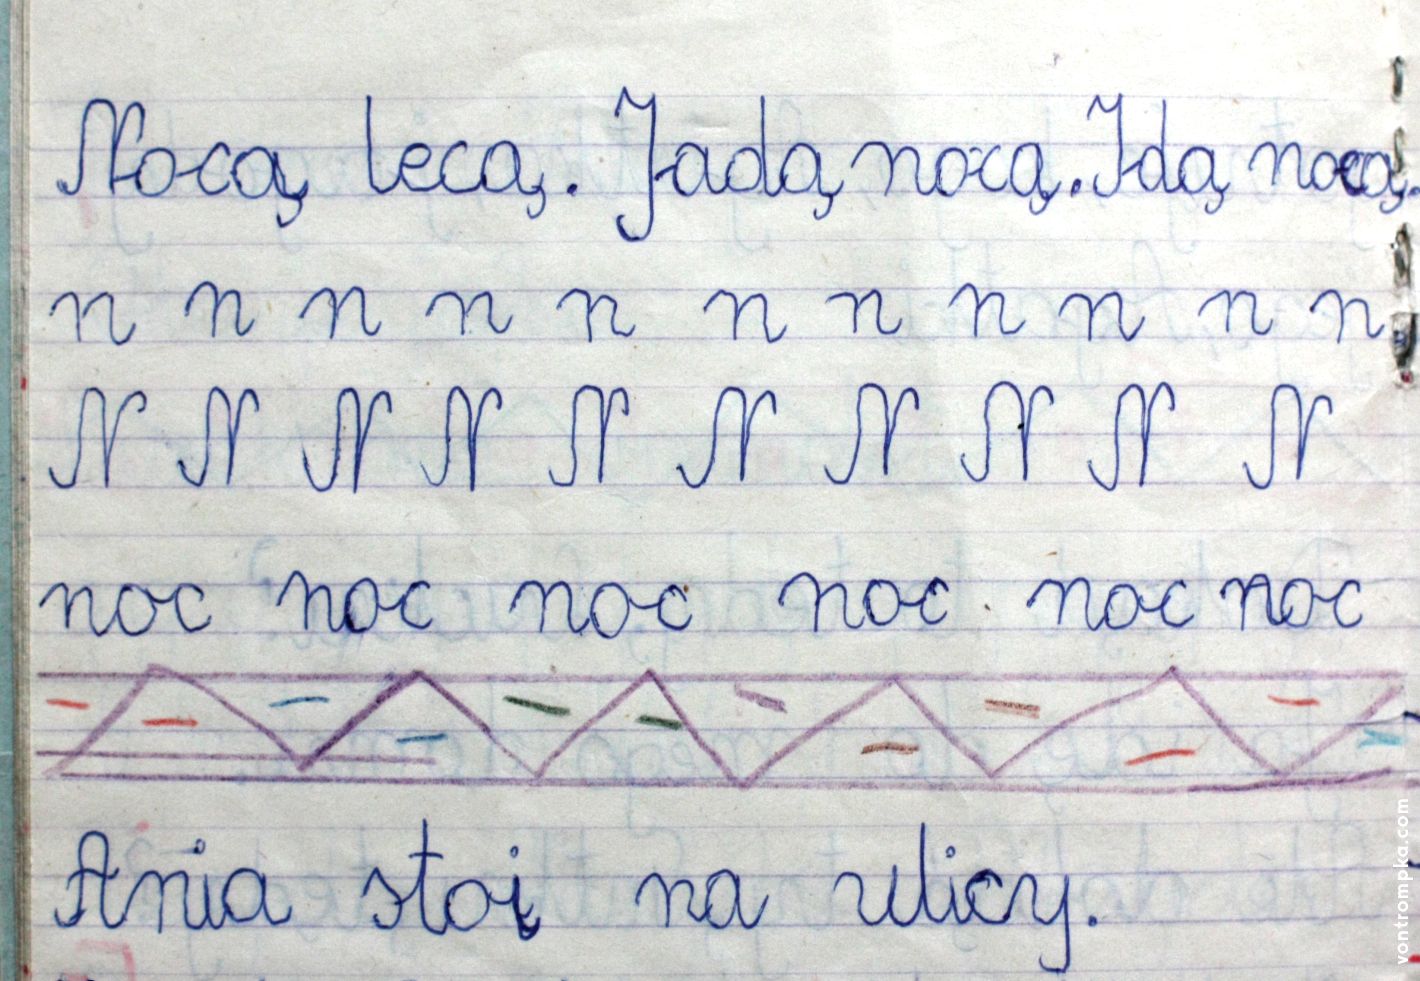 Nocą lecą. Jadą nocą. Idą nocą.
n n n n n n n n n n n
N N N N N N N N N N
noc noc noc noc noc noc
Ania stoi na ulicy.
vontrompka.com